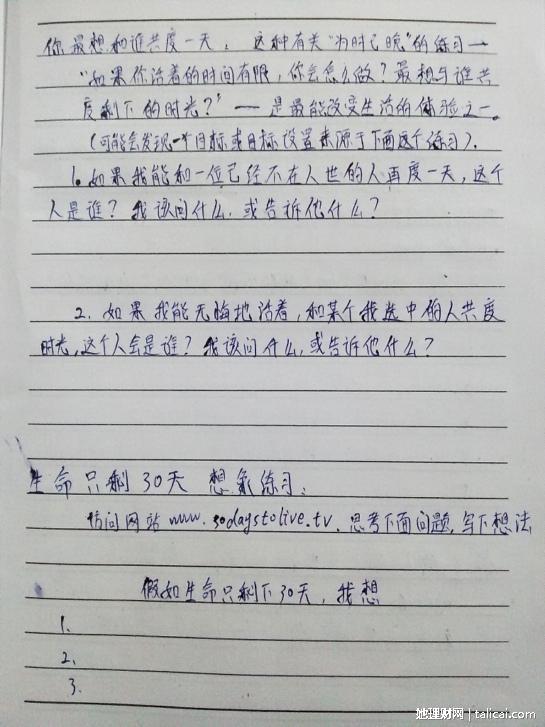 你最想和谁共度一天。这种有关“为时已晚”的练习一
“如果你活着的时间有限，你会怎么做？最想与谁共
度剩下的时光？”一是最能改变生活的体验之一。
（可能会发现一个目标或目标设置来源于下面这个练习）．
1. 如果我能和一位已经不在人世的人再度一天，这个
人是谁？我该问什么，或告诉他什么？
2. 如果我能无悔地活着，和某个我选中的人共度
时光，这个人会是谁？我该问什么，或告诉他什么？
生命只剩30天 想象练习：
访问网站www.30daystolive.tv，思考下面问题，写下想法
假如生命只剩下30天，我想
1.
2.
3.
她理财网 | talicai.com